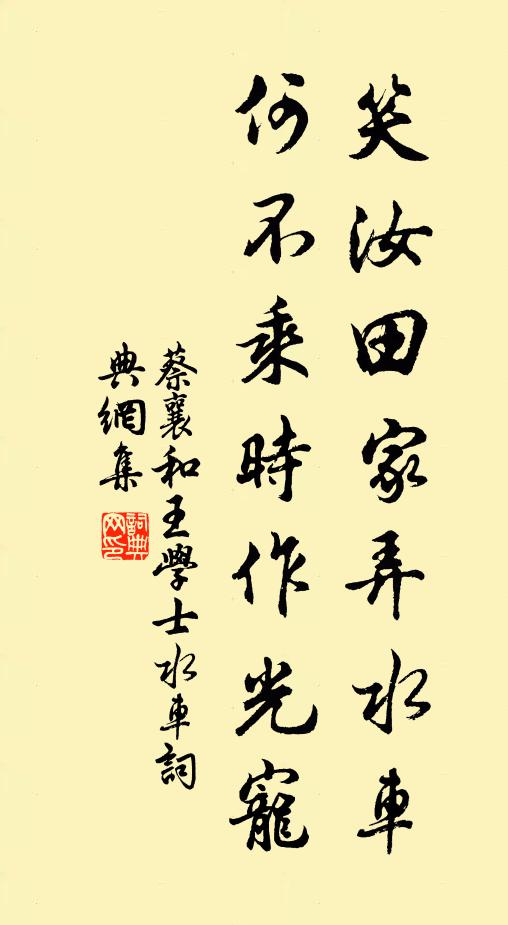 笑汝田家弄水車
何不乘時作光寵
蔡襄和王學士水車詞
典網集
詞典
網印